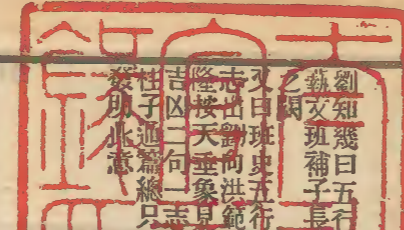 劉知幾曰五行
藝文班補子長
之闕
又曰班史五行
志出劉向洪範
隆按天垂象見
吉凶二句一志
柱子通篇總只
發明此意